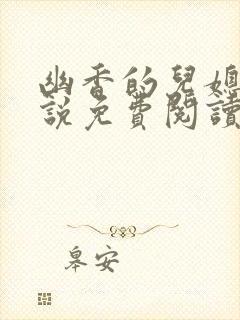 幽香的兒媳
說免費閱讀
皋安